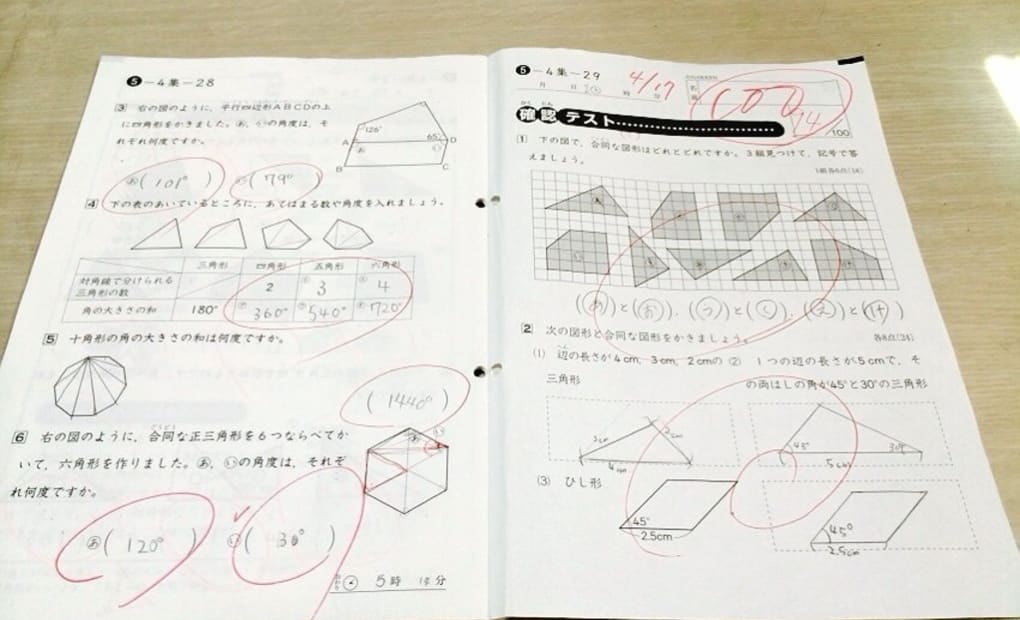 5-4集-28
3 右の図のように、平行四辺形ABCDの上
に四角形をかきました。あ、いの角度は、そ
れぞれ何度ですか。
126°
65°
A
D
B
C
あ
い
あ(101°) い(79°)
4 下の表のあいているところに、あてはまる数や角度を入れましょう。
三角形 四角形 五角形 六角形
対角線で分けられる
三角形の数
2 3 4
角の大きさの和 180° 360° 540° 720°
5 十角形の角の大きさの和は何度ですか。
(1440°)
6 右の図のように、合同な正三角形を6つならべてか
いて、六角形を作りました。あ、いの角度は、それぞ
れ何度ですか。
あ
い
あ(120°) い(30°)
5時 分
5-4集-29
4/17
月 日 時 分
100
/100
確認テスト
かく にん
1 下の図で、合同な図形はどれとどれですか。3組見つけて、記号で答
えましょう。
((あ)と(お)、(う)と(く)、(え)と(け))
2 次の図形と合同な図形をかきましょう。
各8点(24)
(1) 辺の長さが4cm、3cm、2cmの
三角形
(2) 1つの辺の長さが5cmで、そ
の両はしの角が45°と30°の三角形
2cm
4cm
45°
30°
5cm
(3) ひし形
45°
2.5cm
45°
2.5cm